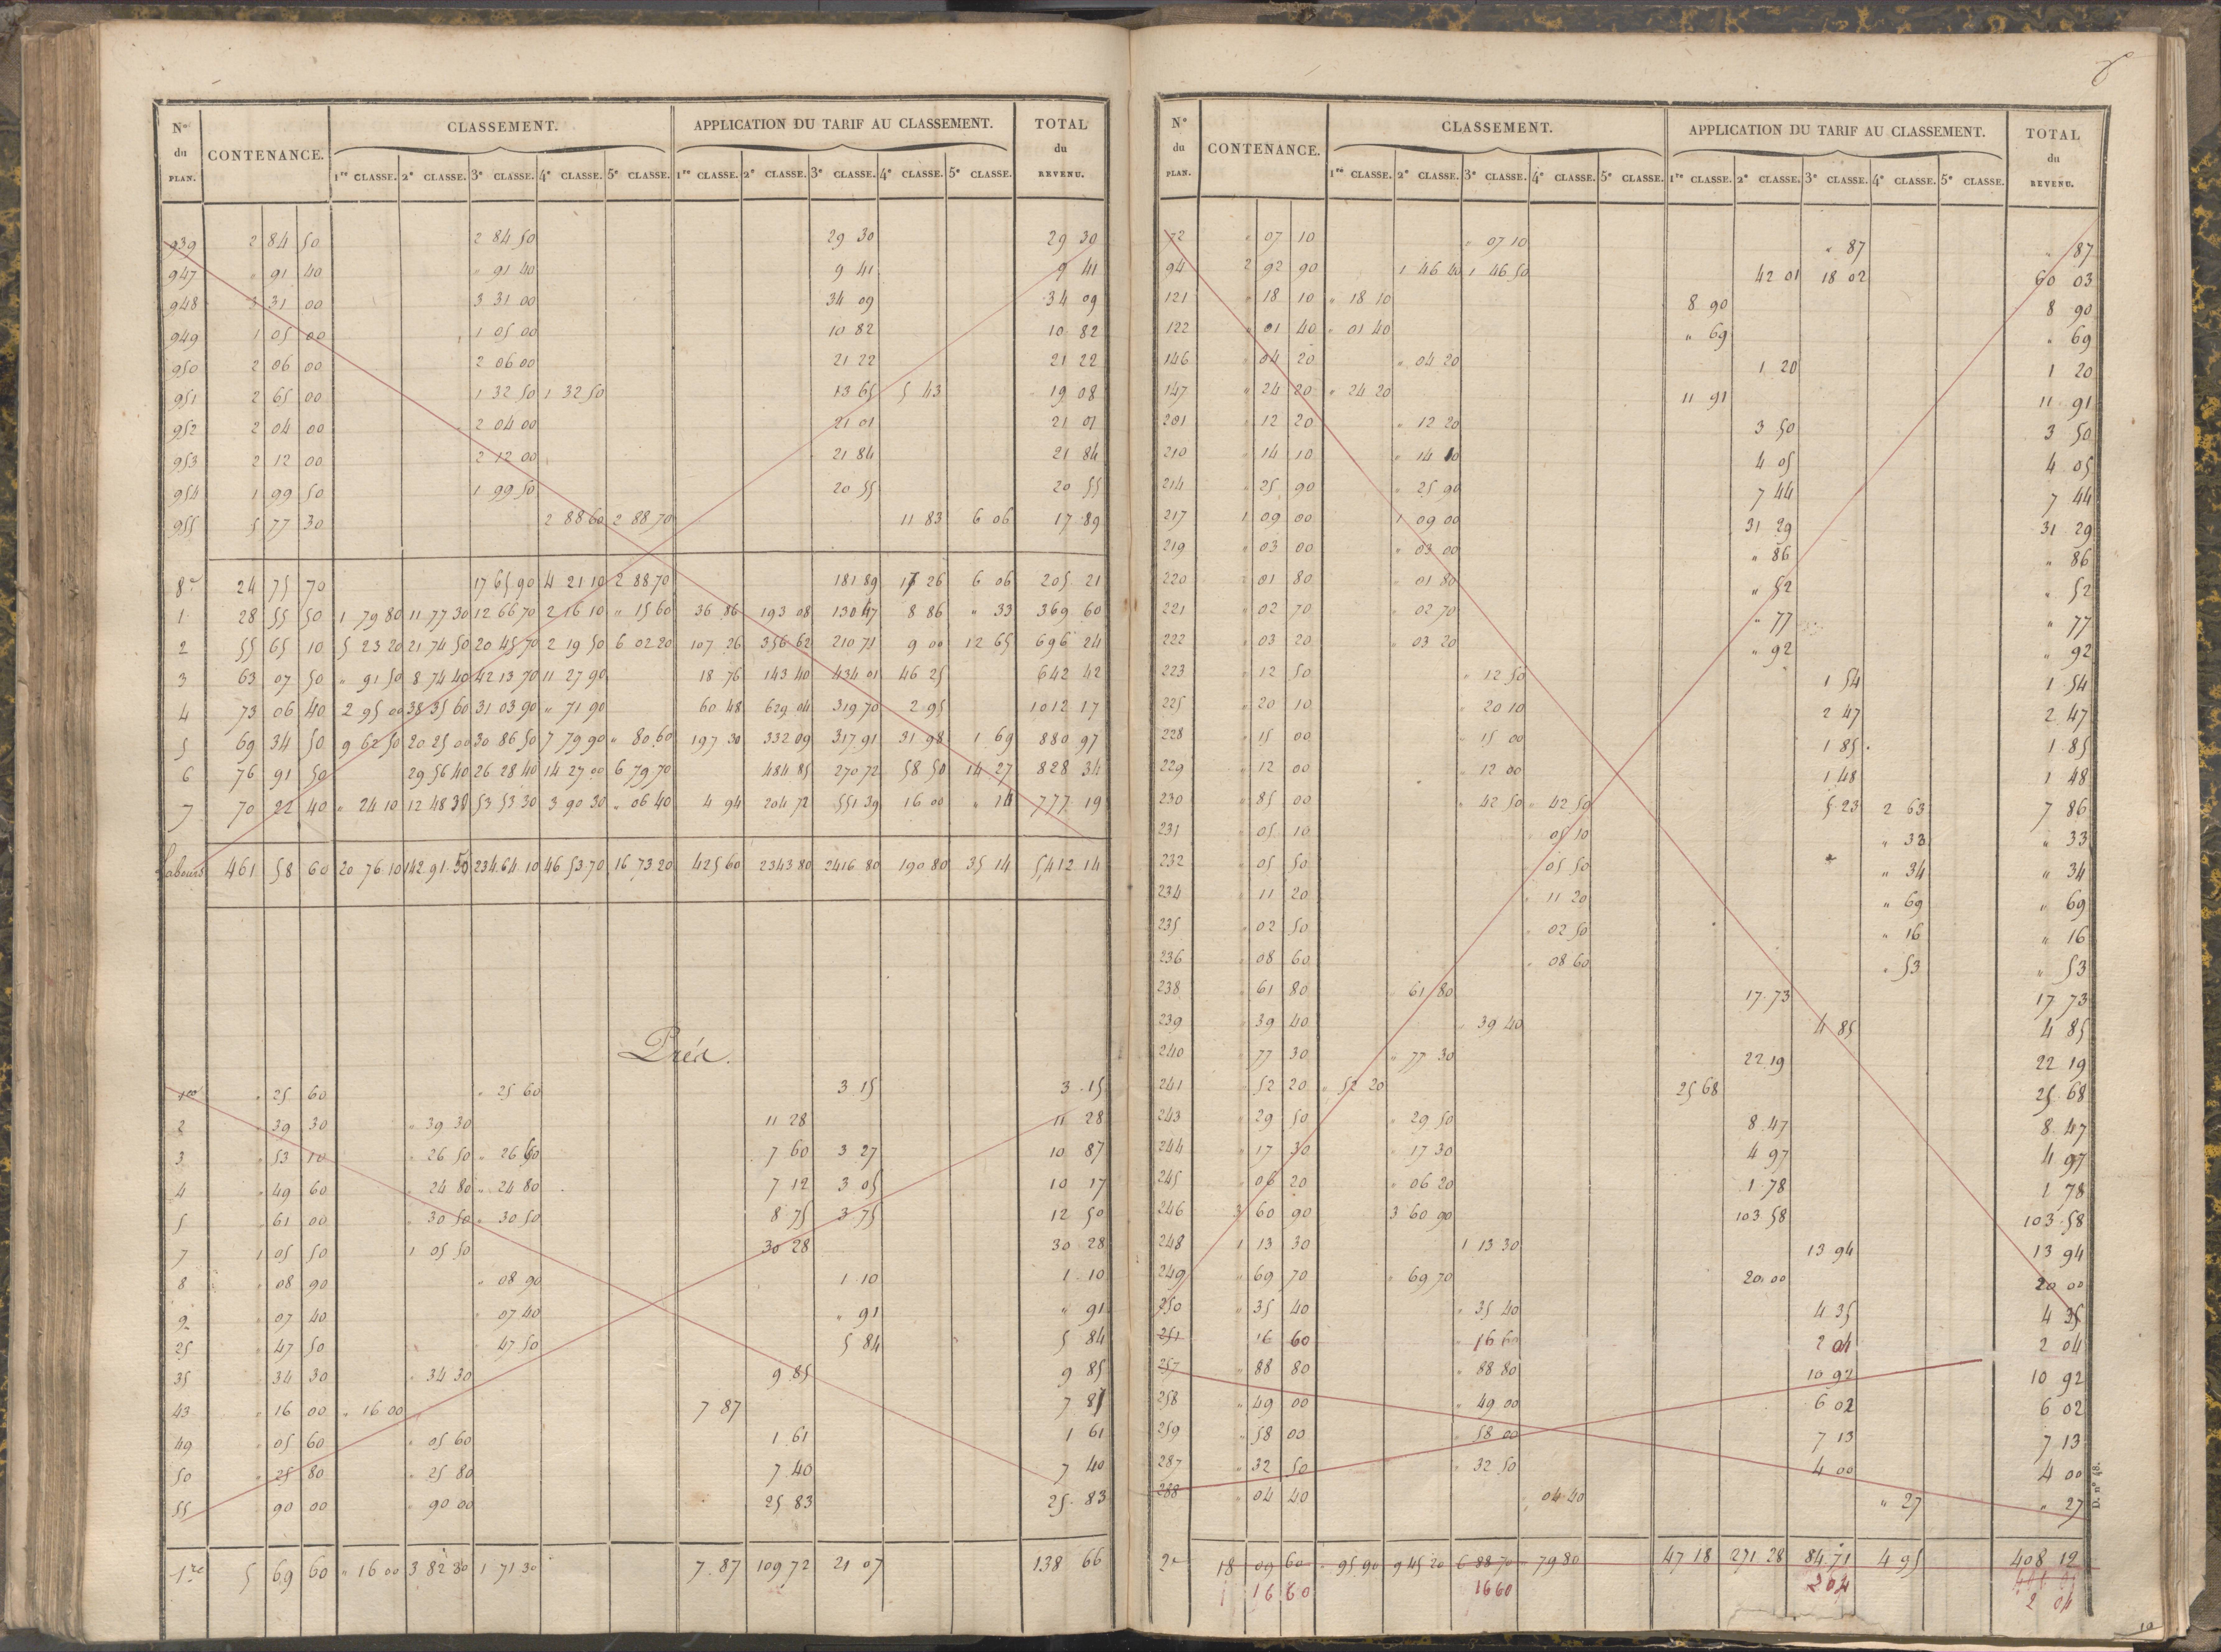 N° du PLAN. CONTENANCE. CLASSEMENT. APPLICATION DU TARIF AU CLASSEMENT. TOTAL du REVENU.
1re CLASSE. 2e CLASSE. 3e CLASSE. 4e CLASSE. 5e CLASSE. 1re CLASSE. 2e CLASSE. 3e CLASSE. 4e CLASSE. 5e CLASSE.
939 2 84 50 2 84 50 29 30 29 30
947 " 91 40 " 91 40 9 41 9 41
948 3 31 00 3 31 00 34 09 34 09
949 1 05 00 1 05 00 10 82 10 82
950 2 06 00 2 06 00 21 22 21 22
951 2 65 00 1 32 50 1 32 50 13 65 5 43 19 08
952 2 04 00 2 04 00 21 01 21 01
953 2 12 00 2 12 00 21 84 21 84
954 1 99 50 1 99 50 20 55 20 55
955 5 77 30 2 88 60 2 88 70 11 83 6 06 17 89
8e 24 75 70 17 65 90 4 21 10 2 88 70 181 89 17 26 6 06 205 21
1 28 55 50 1 79 80 11 77 30 12 66 70 2 16 10 " 15 60 36 86 193 08 130 47 8 86 " 33 369 60
2 55 65 10 5 23 20 21 74 50 20 45 70 2 19 50 6 02 20 107 26 356 62 210 71 9 00 12 65 696 24
3 63 07 50 " 91 50 8 74 40 42 13 70 11 27 90 18 76 143 40 434 01 46 25 642 42
4 73 06 40 2 95 00 38 35 60 31 03 90 " 71 90 60 48 629 04 319 70 2 95 1012 17
5 69 34 50 9 62 50 20 25 00 30 86 50 7 79 90 " 80 60 197 30 332 09 317 91 31 98 1 69 880 97
6 76 91 50 29 56 40 26 28 40 14 27 00 6 79 70 484 85 270 72 58 50 14 27 828 34
7 70 22 40 " 24 10 12 48 30 53 53 30 3 90 30 " 06 40 4 94 204 72 551 39 16 00 " 14 777 19
Labours 461 58 60 20 76 10 142 91 50 234 64 10 46 53 70 16 73 20 425 60 2343 80 2416 80 190 80 35 14 5,412 14
Prés.
1er " 25 60 " 25 60 3 15 3 15
2 " 39 30 " 39 30 11 28 11 28
3 " 53 10 " 26 50 " 26 60 7 60 3 27 10 87
4 " 49 60 " 24 80 " 24 80 7 12 3 05 10 17
5 " 61 00 " 30 50 " 30 50 8 75 3 75 12 50
7 1 05 50 1 05 50 30 28 30 28
8 " 08 90 " 08 90 1 10 1 10
9 " 07 40 " 07 40 " 91 " 91
25 " 47 50 " 47 50 5 84 5 84
35 " 34 30 " 34 30 9 85 9 85
43 " 16 00 " 16 00 7 87 7 87
49 " 05 60 " 05 60 1 61 1 61
50 " 25 80 " 25 80 7 40 7 40
55 " 90 00 " 90 00 25 83 25 83
1re 5 69 60 " 16 00 3 82 30 1 71 30 7 87 109 72 21 07 138 66
N° du PLAN. CONTENANCE. CLASSEMENT. APPLICATION DU TARIF AU CLASSEMENT. TOTAL du REVENU.
1re CLASSE. 2e CLASSE. 3e CLASSE. 4e CLASSE. 5e CLASSE. 1re CLASSE. 2e CLASSE. 3e CLASSE. 4e CLASSE. 5e CLASSE.
72 " 07 10 " 07 10 " 87 " 87
94 2 92 90 1 46 40 1 46 50 42 01 18 02 60 03
121 " 18 10 " 18 10 8 90 8 90
122 " 01 40 " 01 40 " 69 " 69
146 " 04 20 " 04 20 1 20 1 20
147 " 24 20 " 24 20 11 91 11 91
201 " 12 20 " 12 20 3 50 3 50
210 " 14 10 " 14 10 4 05 4 05
214 " 25 90 " 25 90 7 44 7 44
217 1 09 00 1 09 00 31 29 31 29
219 " 03 00 " 03 00 " 86 " 86
220 " 01 80 " 01 80 " 52 " 52
221 " 02 70 " 02 70 " 77 " 77
222 " 03 20 " 03 20 " 92 " 92
223 " 12 50 " 12 50 1 54 1 54
225 " 20 10 " 20 10 2 47 2 47
228 " 15 00 " 15 00 1 85 1 85
229 " 12 00 " 12 00 1 48 1 48
230 " 85 00 " 42 50 " 42 50 5 23 2 63 7 86
231 " 05 10 " 05 10 " 33 " 33
232 " 05 50 " 05 50 " 34 " 34
234 " 11 20 " 11 20 " 69 " 69
235 " 02 50 " 02 50 " 16 " 16
236 " 08 60 " 08 60 " 53 " 53
238 " 61 80 " 61 80 17 73 17 73
239 " 39 40 " 39 40 4 85 4 85
240 " 77 30 " 77 30 22 19 22 19
241 " 52 20 " 52 20 25 68 25 68
243 " 29 50 " 29 50 8 47 8 47
244 " 17 30 " 17 30 4 97 4 97
245 " 06 20 " 06 20 1 78 1 78
246 3 60 90 3 60 90 103 58 103 58
248 1 13 30 1 13 30 13 94 13 94
249 " 69 70 " 69 70 20 00 20 00
250 " 35 40 " 35 40 4 35 4 35
251 16 60 " 16 60 2 04 2 04
257 " 88 80 " 88 80 10 92 10 92
258 " 49 00 " 49 00 6 02 6 02
259 " 58 00 " 58 00 7 13 7 13
287 " 32 50 " 32 50 4 00 4 00
288 " 04 40 " 04 40 " 27 " 27
2e 18 09 60 " 95 90 9 45 20 6 88 70 " 79 80 47 18 271 28 84 71 4 95 408 12
16 60 16 60 2 04 2 04
D. n° 48.
10